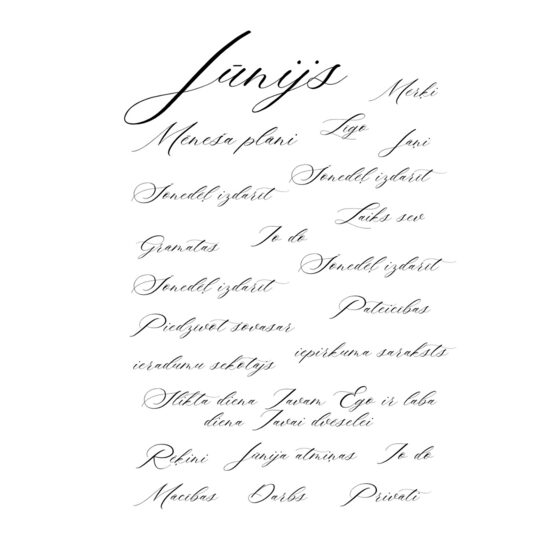 Jūnijs
Mērķi
Mēneša plāni
Līgo
Jāņi
Šonedēļ izdarīt
Šonedēļ izdarīt
Laiks sev
Grāmatas
To do
Šonedēļ izdarīt
Šonedēļ izdarīt
Pateicības
Piedzīvot šovasar
iepirkuma saraksts
ieradumu sekotājs
Slikta diena Tavam Ego ir laba
diena Tavai dvēselei
Rēķini
Jūnija atmiņas
To do
Mācības
Darbs
Privāti